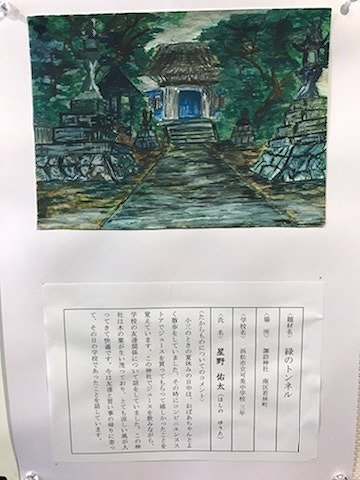 〈題材名〉 緑のトンネル
〈場 所〉 諏訪神社 南区若林町
〈学校名〉 浜松市立可美中学校 三年
〈氏 名〉 星野 佑太（ほしの ゆうた）
〈たからものについてのコメント〉
小三のときの夏休みの日中は、おばあちゃんとよ
く散歩をしていました。その時にコンビニエンスス
トアでジュースを買ってもらって嬉しかったことを
覚えています。この神社でジュースを飲みながら、
学校の友達関係について話をしていました。この神
社は木の葉が生い茂っており、とても涼しい風が入
ってきて快適です。今は友達と習い事の帰りに寄っ
て、その日の学校であったことを話しています。